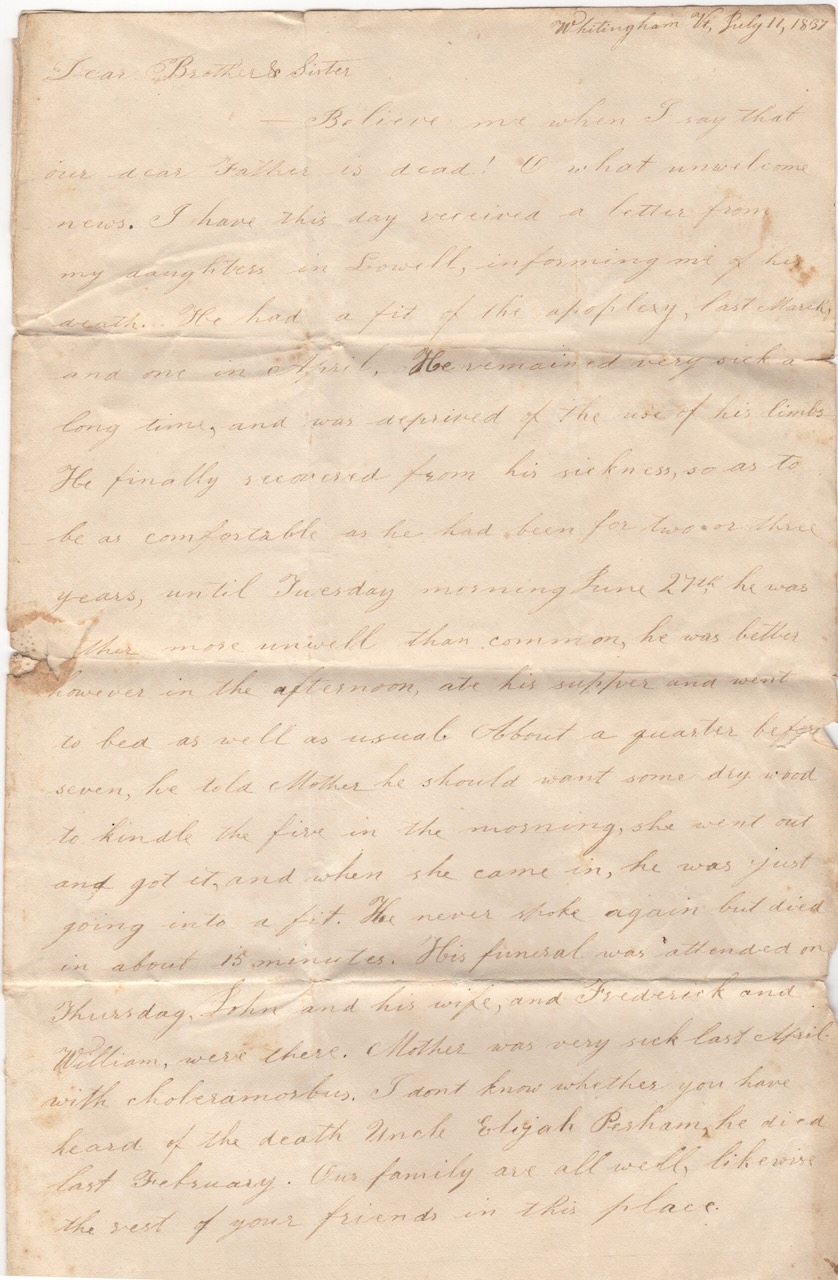 Whitingham Vt, July 11, 1837
Dear Brother & Sister
— Believe me when I say that
our dear Father is dead! O what unwelcome
news. I have this day received a letter from
my daughters in Lowell, informing me of his
death. He had a fit of the apoplexy, last March,
and one in April. He remained very sick a
long time, and was deprived of the use of his limbs
He finally recovered from his sickness, so as to
be as comfortable as he had been for two or three
years, until Tuesday morning June 27th, he was
ther more unwell than common, he was better
however in the afternoon, ate his supper and went
to bed as well as usual. About a quarter before
seven, he told Mother he should want some dry wood
to kindle the fire in the morning, she went out
and got it, and when she came in, he was just
going into a fit. He never spoke again but died
in about 15 minutes. His funeral was attended on
Thursday, John and his wife, and Frederick and
William, were there. Mother was very sick last April
with choleramorbus. I dont know whether you have
heard of the death Uncle Elijah Pesham, he died
last February. Our family are all well, likewise
the rest of your friends in this place.